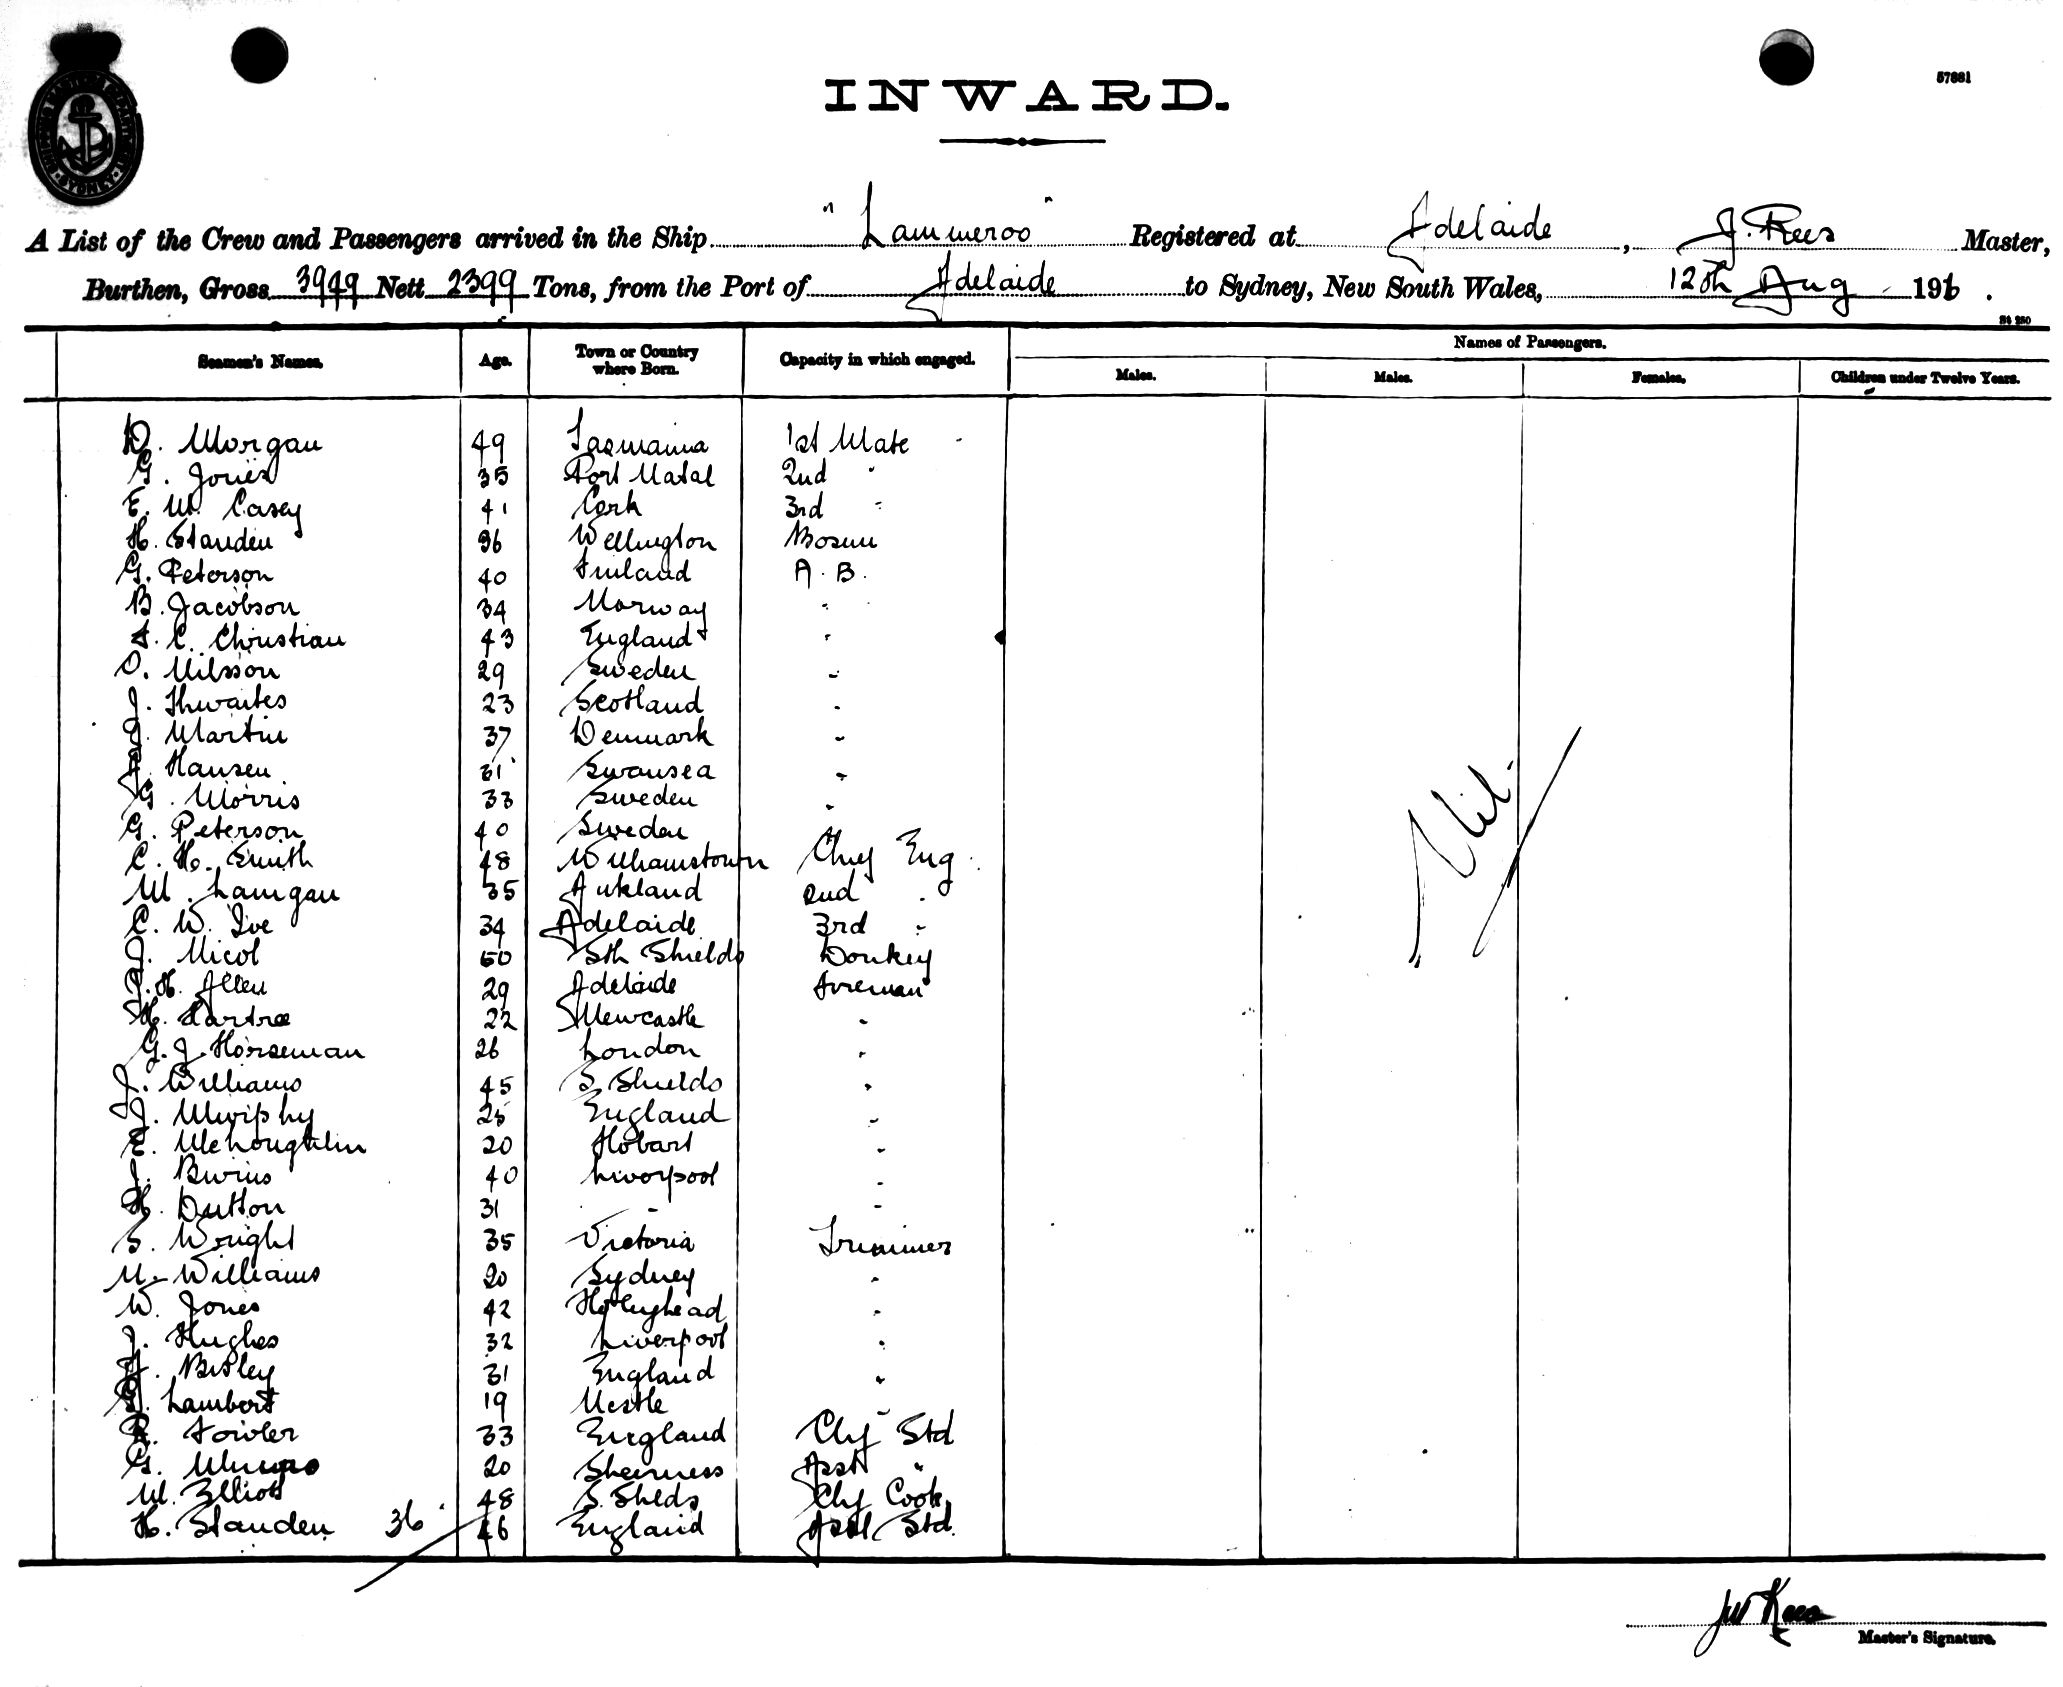 SHIPPING MASTER'S DEPARTMENT SYDNEY
57881
INWARD.
A List of the Crew and Passengers arrived in the Ship "Lammeroo" Registered at Adelaide, J. Rees Master,
Burthen, Gross 3949 Nett 2399 Tons, from the Port of Adelaide to Sydney, New South Wales, 12th Aug 1916.
Seamen's Names. Age. Town or Country where Born. Capacity in which engaged. Names of Passengers.
Males. Males. Females. Children under Twelve Years.
D. Morgan 49 Tasmania 1st Mate
G. Jones 35 Port Natal 2nd "
E. W. Casey 41 Cork 3rd "
H. Standen 36 Wellington Bosun
G. Peterson 40 Finland A.B.
B. Jacobson 34 Norway "
A. C. Christian 43 England "
O. Nilsson 29 Sweden "
J. Thwaites 23 Scotland "
J. Martin 37 Denmark "
J. Hansen 31 Swansea "
G. Morris 33 Sweden "
G. Peterson 40 Sweden "
C. H. Smith 48 Williamstown Chief Eng
M. Lanigan 35 Aukland 2nd "
C. W. Ive 34 Adelaide 3rd "
J. Nicol 50 Sth Shields Donkey
J. H. Allen 29 Adelaide Fireman
H. Hartree 22 Newcastle "
G. J. Horseman 26 London "
J. Williams 45 S. Shields "
J. Murphy 25 England "
E. McLoughlin 20 Hobart "
J. Burns 40 Liverpool "
H. Dutton 31 " "
S. Wright 35 Victoria Trimmer
M. Williams 20 Sydney "
W. Jones 42 Holyhead "
J. Hughes 32 Liverpool "
A. Bisley 31 England "
G. Lambert 19 Ncstle "
R. Fowler 33 England Chf Std
G. Munro 20 Sheerness Asst "
W. Elliott 48 S. Shlds Chf Cook
H. Standen 36 46 England Asst Std.
Nil.
J W Rees
Master's Signature.